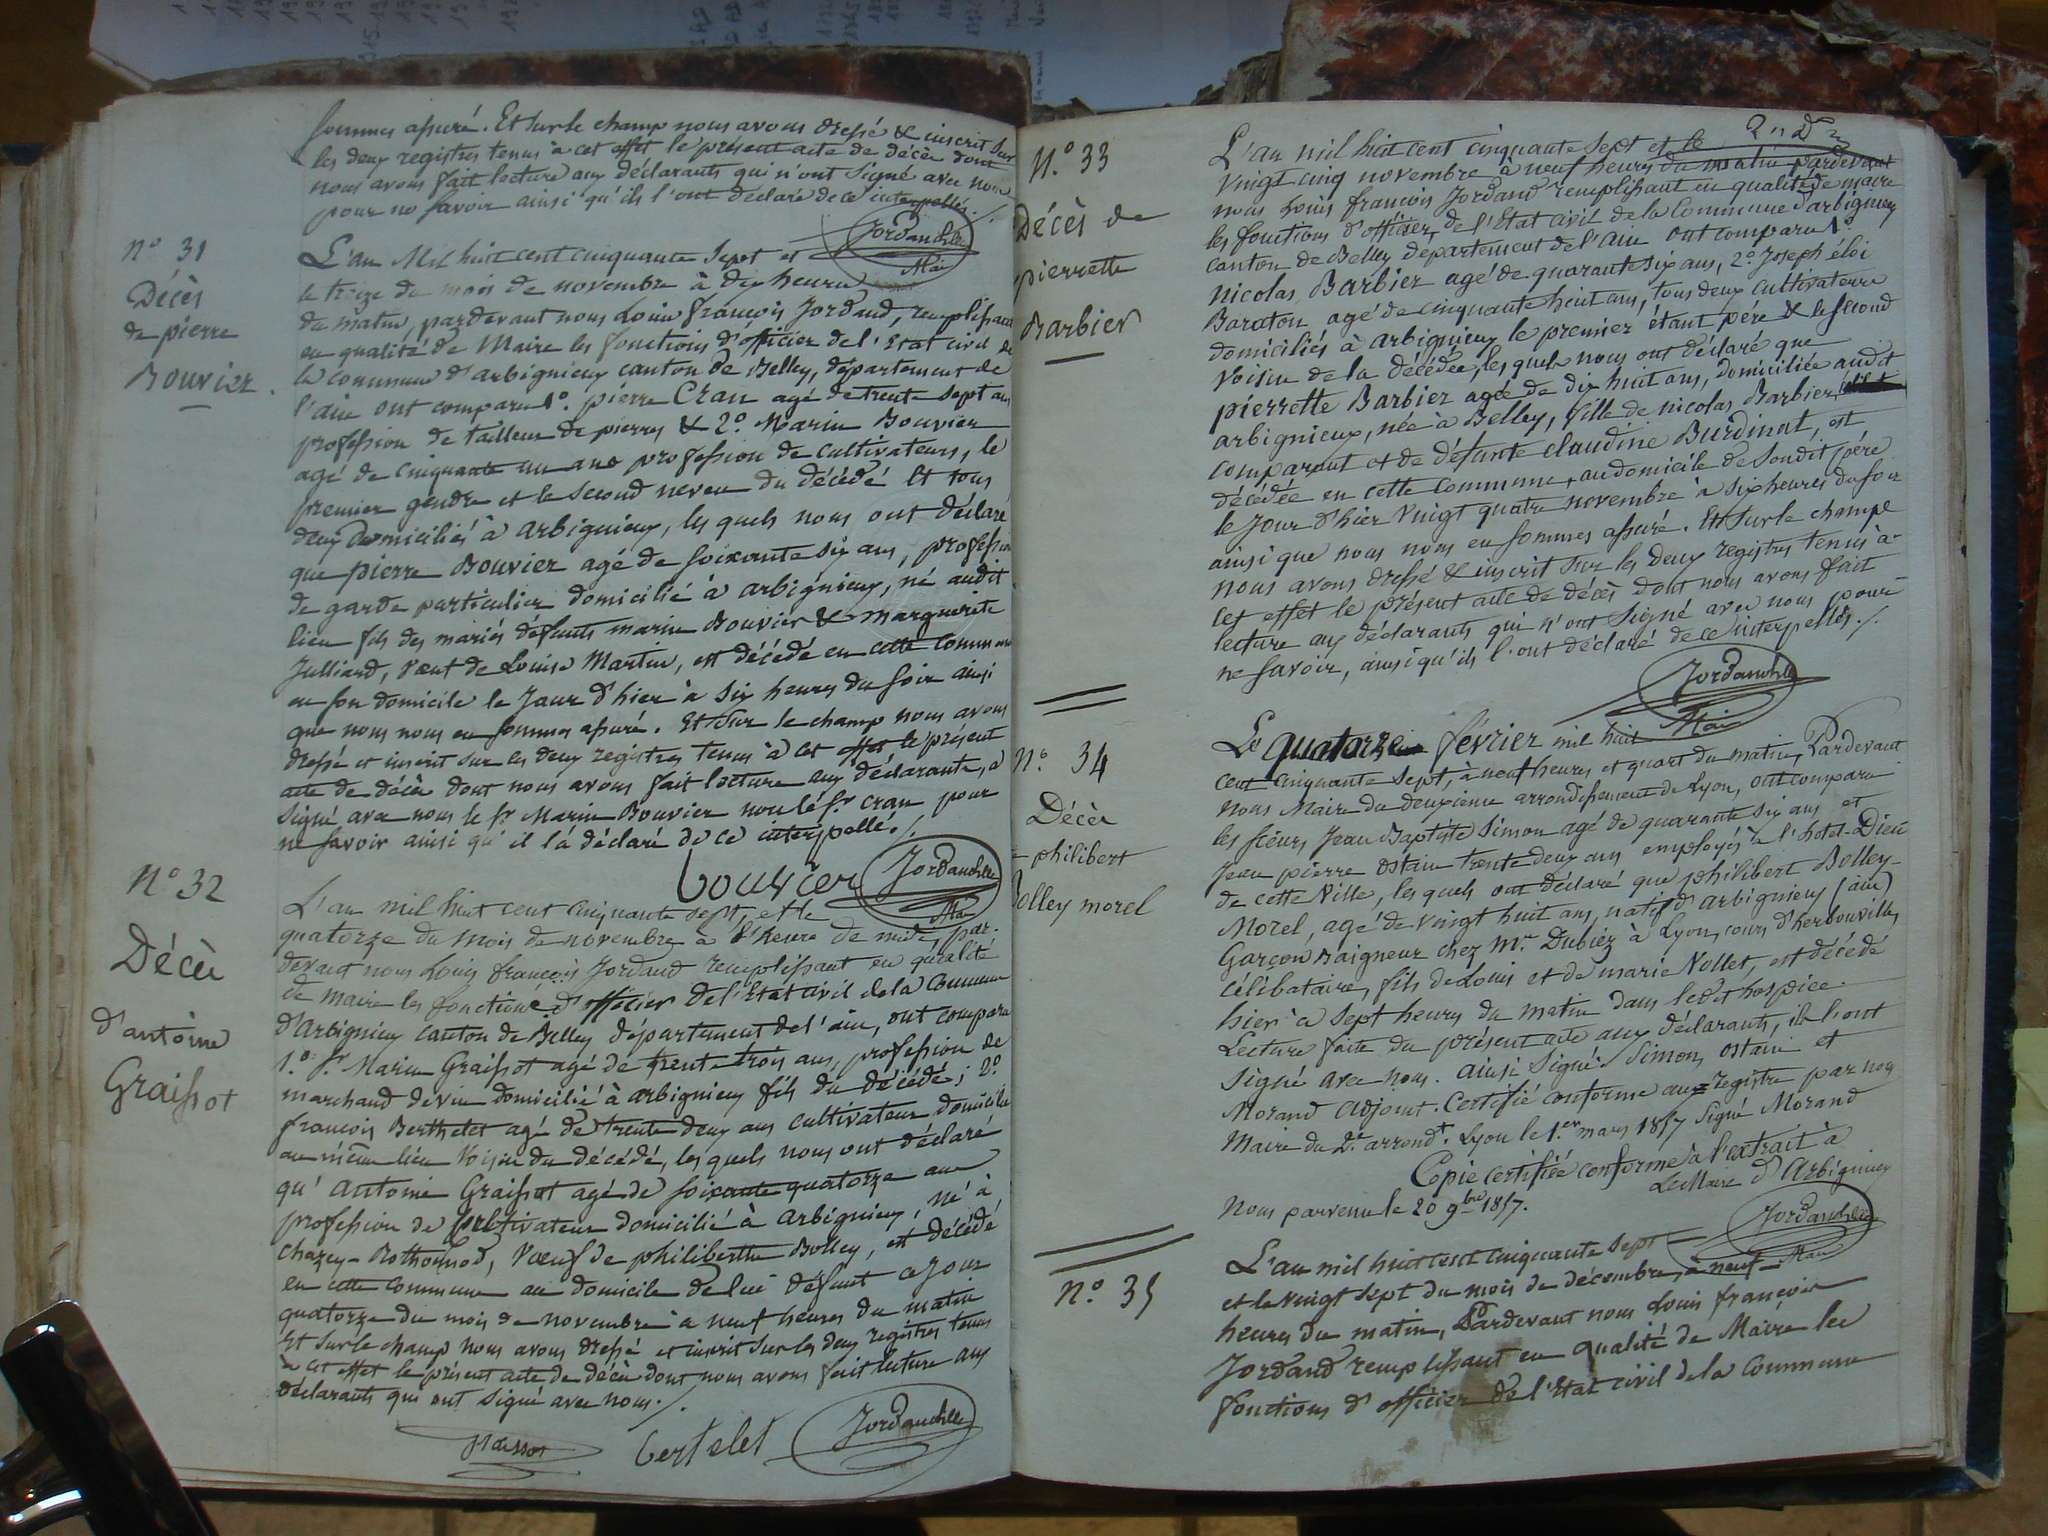 sommes assuré. Et sur le champ nous avons dressé & inscrit sur
les deux registres tenus à cet effet le présent acte de décès dont
nous avons fait lecture aux déclarants qui n'ont signé avec nous
pour ne savoir ainsi qu'ils l'ont déclaré de ce interpellés ./.
N° 31
Décès
de pierre
Bouvier.
L'an Mil huit cent cinquante sept et
le treize du mois de novembre à dix heures
du matin, pardevant nous Louis françois Jordand, remplissant
en qualité de Maire les fonctions d'officier de l'Etat civil de
la commune d'arbignieux canton de Belley, département de
l'ain ont comparu 1°. pierre Cran agé de trente sept ans
profession de tailleur de pierres & 2°. Marin Bouvier
agé de cinquante un ans profession de cultivateurs, le
premier gendre et le second neveu du décédé Et tous
deux domiciliés à arbignieux, les quels nous ont déclaré
que pierre Bouvier agé de soixante six ans, profession
de garde particulier domicilié à arbignieux, né audit
lieu fils des mariés défunts marin Bouvier & marguerite
Julliard, vœuf de Louise Martin, est décédé en cette commune
en son domicile le Jour d'hier à six heures du soir ainsi
que nous nous en sommes assuré. Et Sur le champ nous avons
dressé et inscrit sur les deux registres tenus à cet effet le présent
acte de décès dont nous avons fait lecture aux déclarants, a
signé avec nous le sr. Marin Bouvier non le sr cran pour
ne savoir ainsi qu'il l'a déclaré de ce interpellé ./.
bouvier
N° 32
Décès
d'antoine
Graissot
L'an mil huit cent cinquante sept, et le
quatorze du mois de novembre à l'heure de midi, par-
devant nous Louis françois Jordand remplissant en qualité
de maire les fonctions d'officier de l'Etat civil de la commune
d'Arbignieu canton de Belley département de l'ain, ont comparu
1°. sr. Marin Graissot agé de trente trois ans, profession de
marchand de vin domicilié à arbignieux fils du décédé; 2°.
françois Berthelet agé de trente deux ans cultivateur domicilié
au même lieu voisin du décédé, les quels nous ont déclaré
qu'Antoine Graissot agé de soixante quatorze ans
profession de cultivateur domicilié à Arbignieux, né à
chazey-Bothonod, vœuf de philiberthe Bolley, est décédé
en cette commune au domicile de lui défunt ce Jour
quatorze du mois de novembre à neuf heures du matin
Et sur le champ nous avons dressé et inscrit sur les deux registres tenus
à cet effet le présent acte de décès dont nous avons fait lecture aux
déclarants qui ont signé avec nous ./.
bertelet
N.° 33
Décès de
pierrette
Barbier
L'an mil huit cent cinquante sept et le
vingt cinq novembre à neuf heures du matin pardevant
nous Louis françois Jordand remplissant en qualité de maire
les fonctions d'officier de l'Etat civil de la Commune d'arbignieu
canton de Belley département de l'ain ont comparu 1°
nicolas Barbier agé de quarante six ans, 2° Joseph éloi
Baraton agé de cinquante huit ans, tous deux cultivateurs
domiciliés à arbignieux le premier étant père & le second
voisin de la décédée, les quels nous ont déclaré que
pierrette Barbier agée de dix huit ans, domiciliée audit
arbignieux, née à Belley, fille de nicolas Barbier
comparant et de défunte claudine Burdinat, est
décédée en cette commune au domicile de son dit père
le jour d'hier vingt quatre novembre à six heures du soir
ainsi que nous nous en sommes assuré. Et Sur le champ
nous avons dressé & inscrit sur les deux registres tenus à
cet effet le présent acte de décès dont nous avons fait
lecture aux déclarants qui n'ont signé avec nous pour
ne savoir, ainsi qu'ils l'ont déclaré de ce interpellés ./.
N°. 34
Décès
philibert
Bolley morel
Le quatorze février mil huit
cent cinquante sept, à neuf heures et quart du matin, Pardevant
nous Maire du deuxieme arrondissement de Lyon, ont comparu
les sieurs Jean Baptiste Simon agé de quarante six ans et
Jean pierre ostain trente deux ans employés à l'hotel-Dieu
de cette Ville, les quels ont déclaré que philibert Bolley-
Morel, agé de vingt huit ans, natif d'arbignieux (ain)
Garçon Baigneur chez Mr. Dubiez à Lyon, cours d'herbouville,
célibataire, fils de Louis et de marie Nollet, est décédé
hier à sept heures du matin dans ledit hospice.
Lecture faite du présent acte aux déclarants, ils l'ont
signé avec nous. ainsi signé: Simon, ostain et
Morand adjoint. Certifié conforme aux registre par nous
Maire du 2e. arrondt. Lyon le 1.er mars 1857 Signé Morand
Copie certifiée conforme à l'extrait à
Nous parvenu le 20 9bre 1857.
Le Maire d'Arbignieu
N°. 35
L'an mil huit cent cinquante sept
et le vingt sept du mois de décembre, à neuf
heures du matin, Pardevant nous Louis françois
Jordand remplissant en qualité de Maire les
fonctions d'officier de l'Etat civil de la Commune